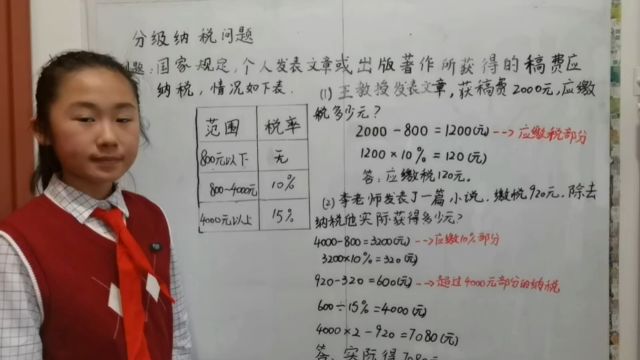 分级纳税问题
题：国家规定，个人发表文章或出版著作所获得的稿费应
纳税，情况如下表.
范围 税率
800元以下 无
800-4000元 10%
4000元以上 15%
(1) 王教授发表文章，获稿费2000元，应缴
税多少元？
2000-800=1200(元) --→应缴税部分
1200×10%=120(元)
答：应缴税120元.
(2) 李老师发表了一篇小说，缴税920元，除去
纳税他实际获得多少元？
4000-800=3200(元) --→应缴10%部分
3200×10%=320(元)
920-320=600(元) --→超过4000元部分的纳税
600÷15%=4000(元)
4000×2-920=7080(元)
答：实际得